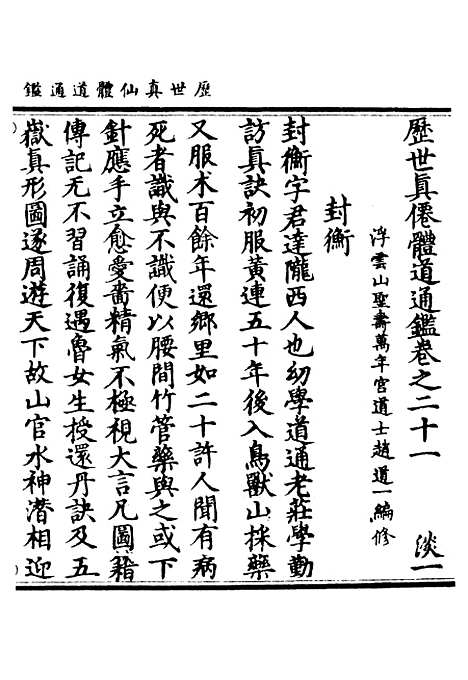 歷世真仙體道通鑑
歷世眞僊體道通鑑卷之二十一 淡一
浮雲山聖壽萬年宮道士趙道一編修
封衡
封衡字君達隴西人也幼學道通老莊學勤
訪眞訣初服黃連五十年後入鳥獸山採藥
又服术百餘年還鄉里如二十許人聞有病
死者識與不識便以腰間竹管藥與之或下
針應手立愈愛嗇精氣不極視大言凡圖籍
傳記无不習誦復遇魯女生授還丹訣及五
嶽眞形圖遂周遊天下故山官水神潛相迎